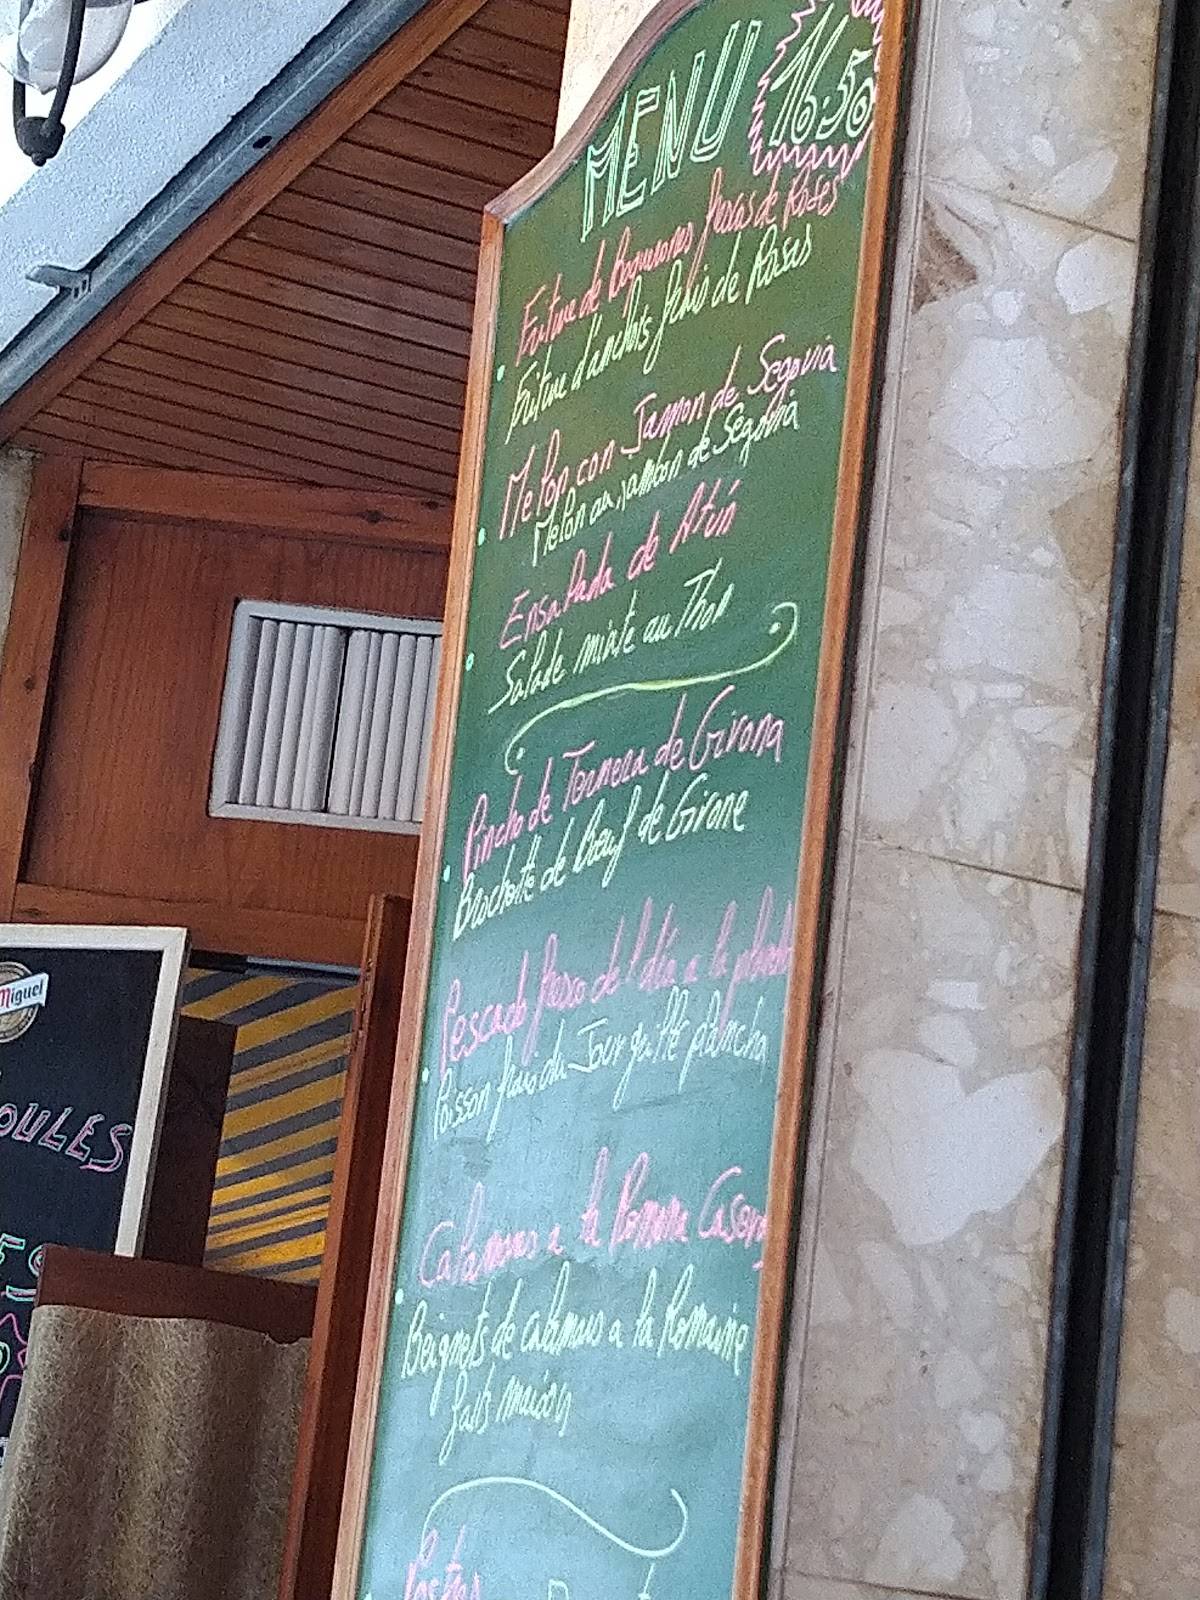 MENU 16.50
Friture de Boquerones frescas de Roses
Friture d'anchois frais de Roses
Melon con Jamon de Segovia
Melon au jambon de Segovia
Ensalada de Atún
Salade mixte au Thon
Pincho de Ternera de Girona
Brochette de Bœuf de Girone
Pescado fresco del día a la
Poisson frais du Jour grillé plancha
Calamares a la Romana
Beignets de calamars a la Romaine
faits maison
Postres
Miguel
OULES